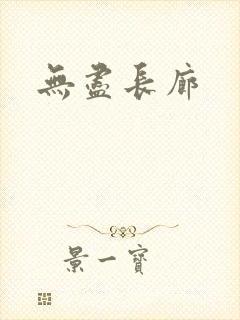 無盡長廊
景一寶